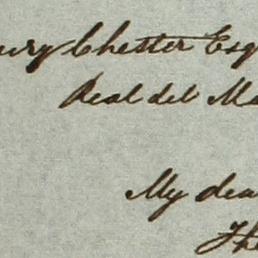 Chester Esq
Real del Mo
My dea
Th